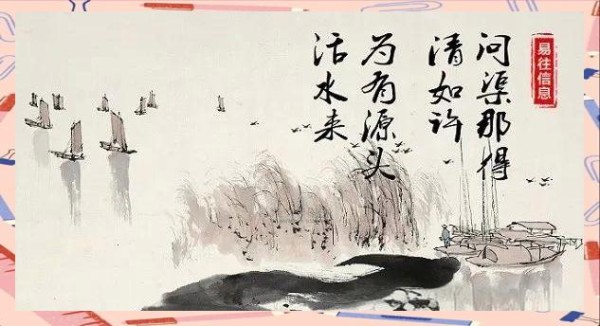 问渠那得
清如许
为有源头
活水来
易往信息